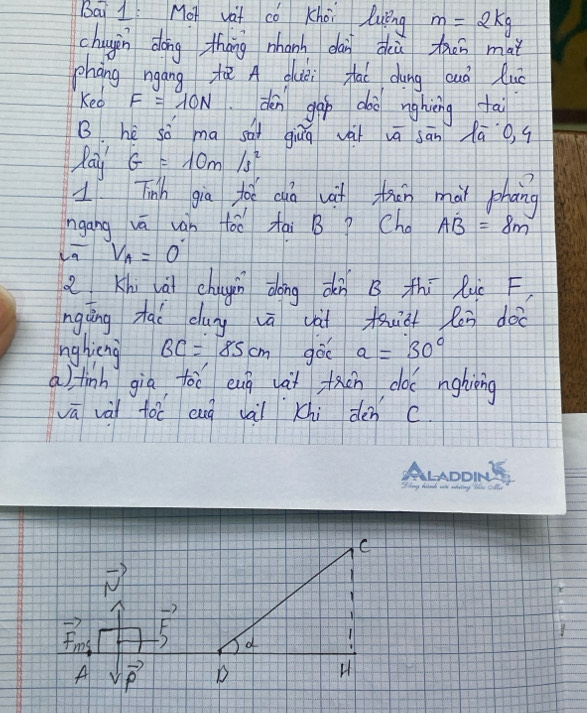 Bài 1: Một vật có khối lượng m = 2kg
chuyển động thẳng nhanh dần đều trên mặt
phẳng ngang từ A dưới tác dụng của lực
kéo F = 10N. đến gặp dốc nghiêng tại
B. hệ số ma sát giữa vật và sàn là 0,4
lấy G = 10m /s²
1. Tính gia tốc của vật trên mặt phẳng
ngang và vận tốc tại B ? Cho AB = 8m
và VA = 0
2. Khi vật chuyển động đến B thì lực F
ngừng tác dụng và vật trượt lên dốc
nghiêng BC = 85cm góc a = 30°
a) tính gia tốc của vật trên dốc nghiêng
và vật tốc của vật khi đến C.
ALADDIN
C
N
Fms
F
α
A
P
B
H